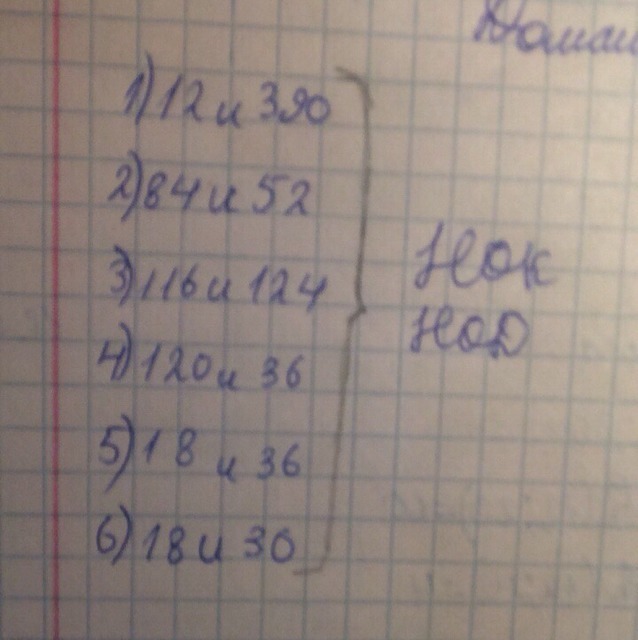 1) 12 и 390
2) 84 и 52
3) 116 и 124
НОК
НОД
4) 120 и 36
5) 18 и 36
6) 18 и 30